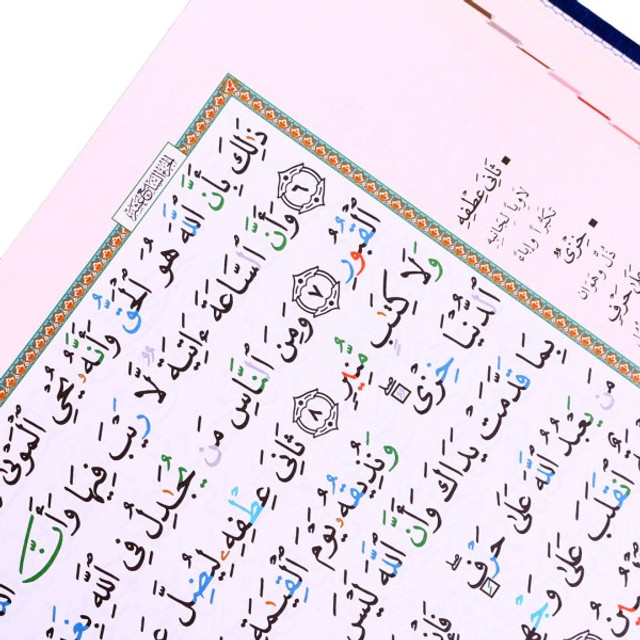 ذَٰلِكَ بِأَنَّ ٱللَّهَ هُوَ ٱلْحَقُّ وَأَنَّهُۥ يُحْىِ ٱلْمَوْتَىٰ
٦ وَأَنَّ ٱلسَّاعَةَ ءَاتِيَةٌ لَّا رَيْبَ فِيهَا وَأَنَّ
ٱلْقُبُورِ ٧ وَمِنَ ٱلنَّاسِ مَن يُجَٰدِلُ فِى ٱللَّهِ بِغَيْرِ
وَلَا كِتَٰبٍ مُّنِيرٍ ٨ ثَانِىَ عِطْفِهِۦ لِيُضِلَّ
ٱلدُّنْيَا خِزْىٌ وَنُذِيقُهُۥ يَوْمَ ٱلْقِيَٰمَةِ
بِمَا قَدَّمَتْ يَدَاكَ وَأَنَّ ٱللَّهَ لَيْسَ
مَن يَعْبُدُ ٱللَّهَ عَلَىٰ حَرْفٍ فَإِنْ
ٱنقَلَبَ عَلَىٰ
ثَانِىَ عِطْفِهِ
لاويا لجانبه
تكبرا وإباء
خِزْىٌ
ذل وهوان